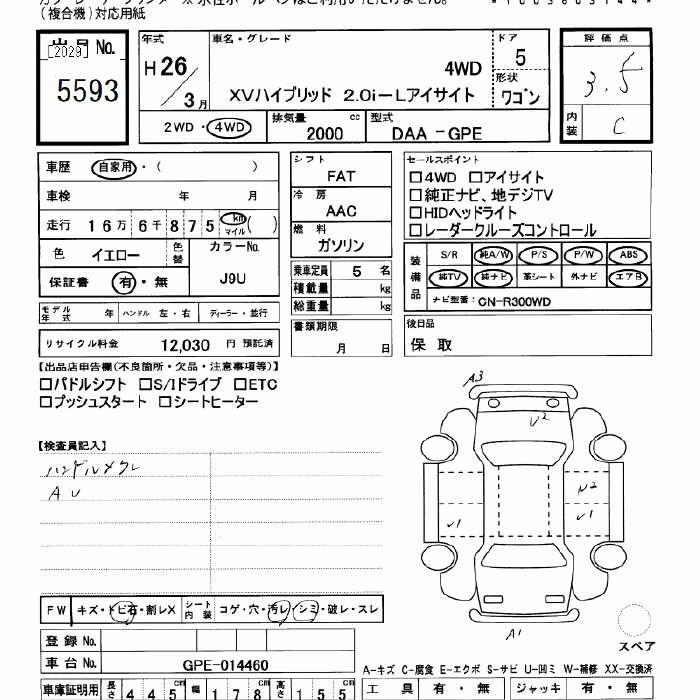 (複合機)対応用紙
出品No.
[2029]
5593
年式
H26/3月
車名・グレード
4WD
XVハイブリッド 2.0i-Lアイサイト
ドア
5
形状
ワゴン
2WD・4WD
排気量
2000 cc
型式
DAA -GPE
評価点
3.5
内装
C
車歴 自家用・( )
車検 年 月
走行 16万6千875 km マイル ( )
色 イエロー 色替
カラーNo.
J9U
保証書 有・無
モデル年式 年 ハンドル 左・右 ディーラー・並行
リサイクル料金 12,030 円 預託済
シフト
FAT
冷房
AAC
燃料
ガソリン
乗車定員 5 名
積載量 kg
総重量 kg
書類期限
月 日
セールスポイント
□4WD □アイサイト
□純正ナビ、地デジTV
□HIDヘッドライト
□レーダークルーズコントロール
装備品
S/R 純A/W P/S P/W ABS
純TV 純ナビ 革シート 外ナビ エアB
ナビ型番: CN-R300WD
後日品
保取
【出品店申告欄(不良箇所・欠品・注意事項等)】
□パドルシフト □S/Iドライブ □ETC
□プッシュスタート □シートヒーター
【検査員記入】
ハンドルメクレ
AU
A3
U2
U2
U1
U1
A1
スペア
FW キズ・トビ石・割レX
シート内装 コゲ・穴・汚レ・シミ・破レ・スレ
登録No.
車台No. GPE-014460
車庫証明用 長さ 445 幅 178 高さ 155
A-キズ C-腐食 E-エクボ S-サビ U-凹ミ W-補修 XX-交換済
工具 有・無 ジャッキ 有・無